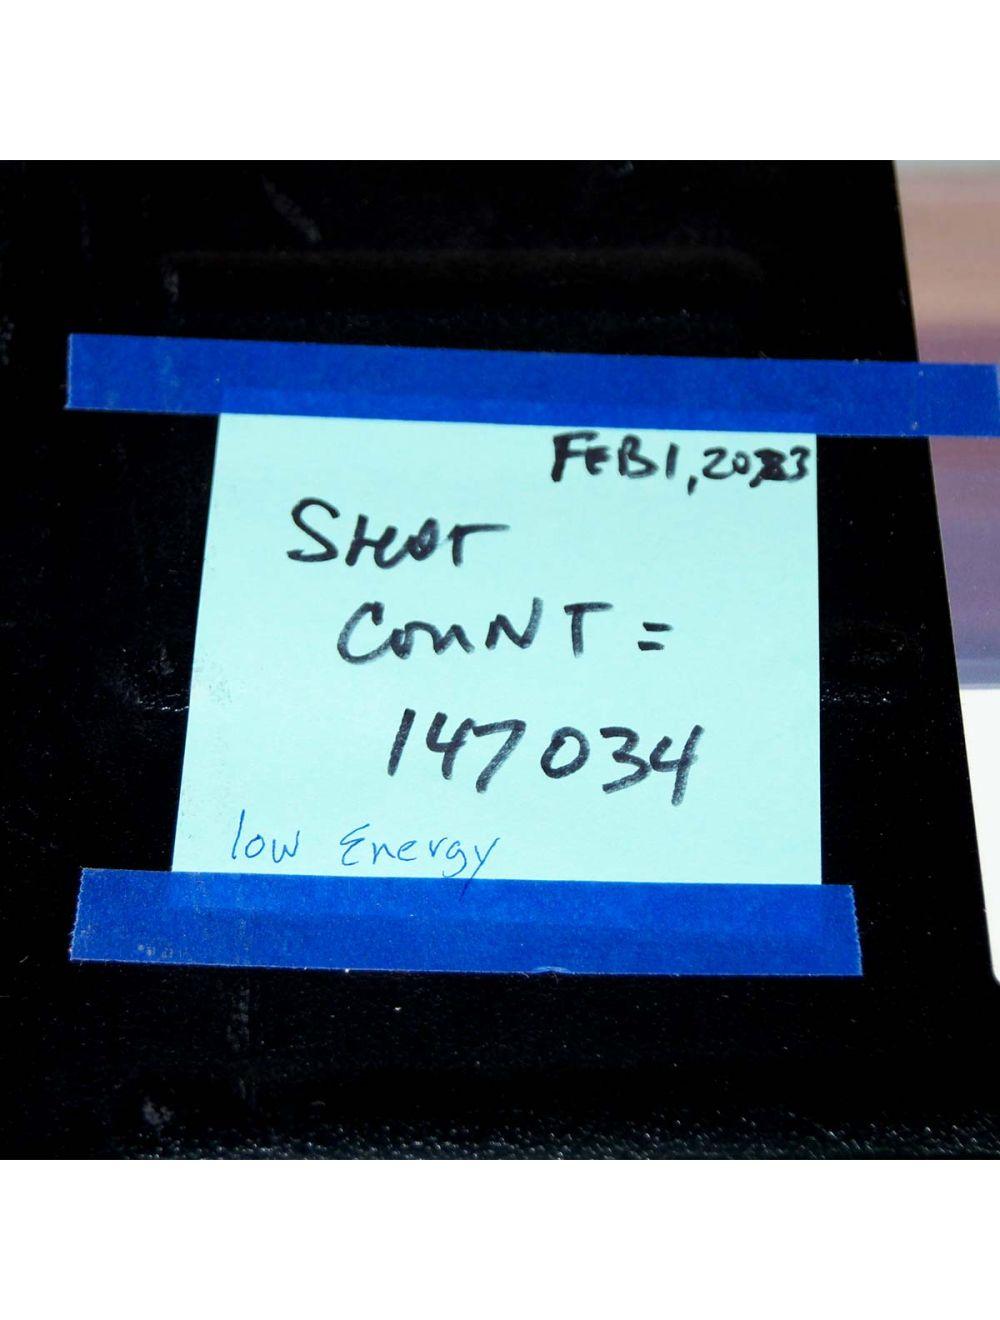 FEB 1, 2023
SHOT
COUNT =
147034
low Energy